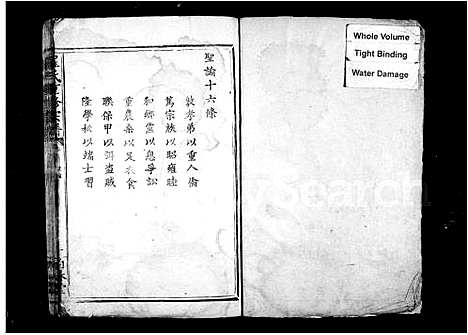 聖諭十六條
敦孝弟以重人倫
篤宗族以昭雍睦
和鄉黨以息爭訟
重農桑以足衣食
聯保甲以弭盜賊
隆學校以端士習
Whole Volume
Tight Binding
Water Damage